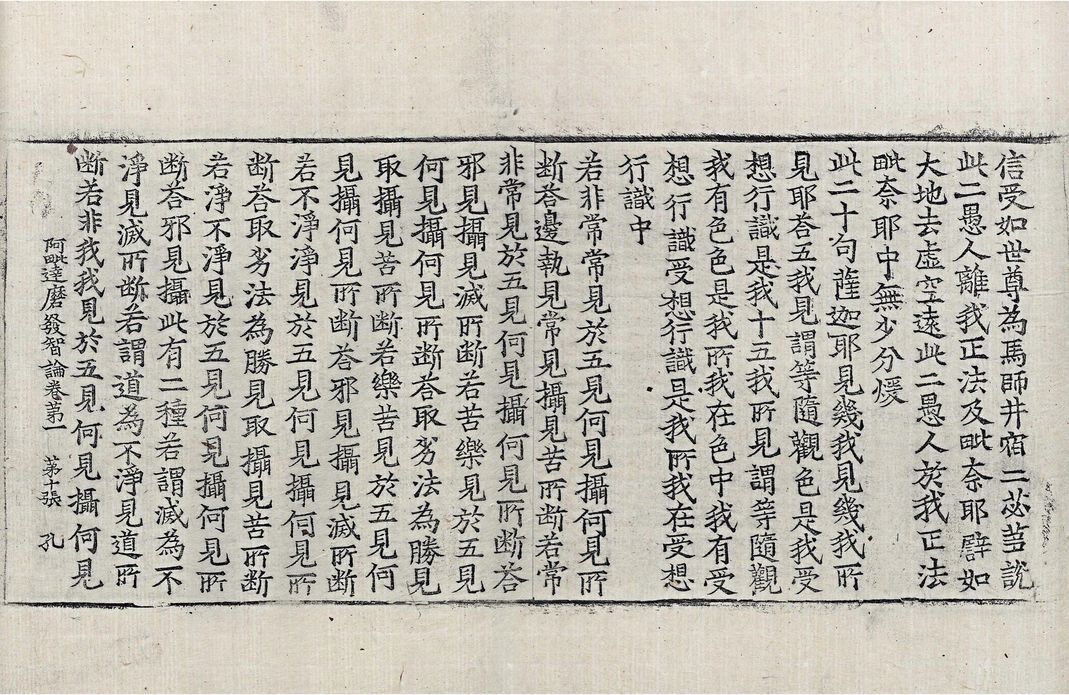 信受如世尊為馬師井宿二苾芻說
此二愚人離我正法及毗奈耶譬如
大地去虛空遠此二愚人於我正法
毗奈耶中無少分煖
此二十句薩迦耶見幾我見幾我所
見耶荅五我見謂等隨觀色是我受
想行識是我十五我所見謂等隨觀
我有色色是我所我在色中我有受
想行識受想行識是我所我在受想
行識中
若非常常見於五見何見攝何見所
断荅邊執見常見攝見苦所断若常
非常見於五見何見攝何見所断荅
邪見攝見滅所断若苦樂見於五見
何見攝何見所断荅取劣法為勝見
取攝見苦所断若樂苦見於五見何
見攝何見所断荅邪見攝見滅所断
若不淨淨見於五見何見攝何見所
断荅取劣法為勝見取攝見苦所断
若淨不淨見於五見何見攝何見所
断荅邪見攝此有二種若謂滅為不
淨見滅所断若謂道為不淨見道所
阿毗達磨發智論卷第一 第十張 孔
断若非我我見於五見何見攝何見